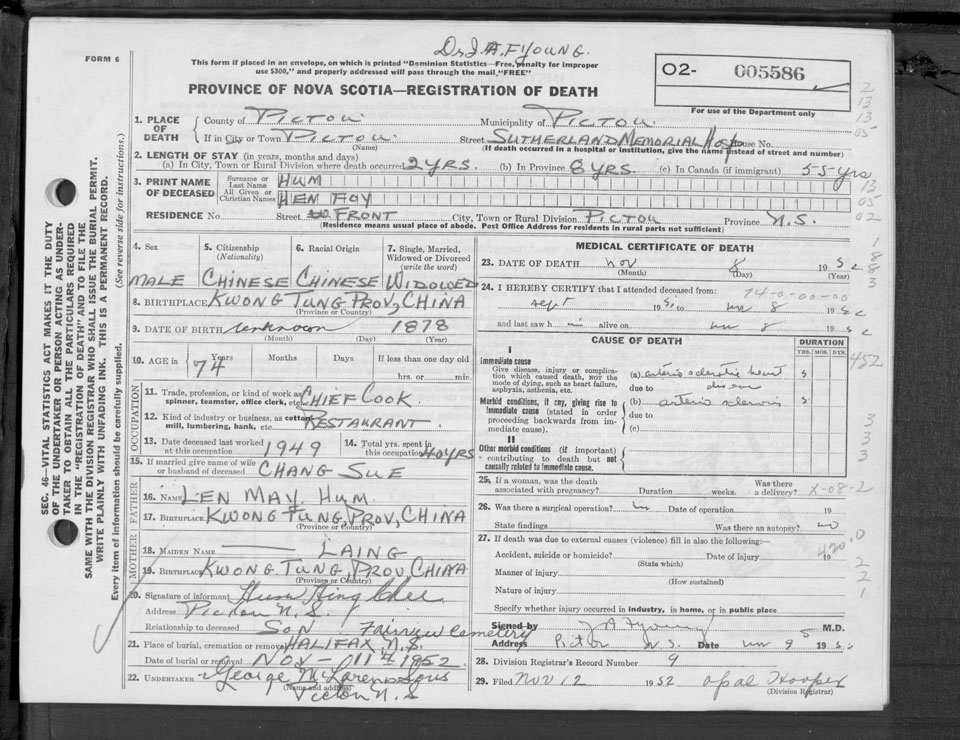 Dr J. A. F. YOUNG.
FORM 6
This form if placed in an envelope, on which is printed "Dominion Statistics—Free, penalty for improper
use $300," and properly addressed will pass through the mail "FREE"
O2- 005586
For use of the Department only
PROVINCE OF NOVA SCOTIA—REGISTRATION OF DEATH
1. PLACE OF DEATH
County of PICTOU Municipality of PICTOU
If in City or Town PICTOU. Street SUTHERLAND MEMORIAL Hosp House No.
(Name) (If death occurred in a hospital or institution, give the name instead of street and number)
2. LENGTH OF STAY (in years, months and days)
(a) In City, Town or Rural Division where death occurred 2 YRS. (b) In Province 8 YRS. (c) In Canada (if immigrant) 55 yrs
3. PRINT NAME OF DECEASED
Surname or Last Name HUM
All Given or Christian Names HEM FOY
RESIDENCE No. Street FRONT City, Town or Rural Division PICTOU Province N.S.
(Residence means usual place of abode. Post Office Address for residents in rural parts not sufficient)
4. Sex 5. Citizenship (Nationality) 6. Racial Origin 7. Single, Married, Widowed or Divorced (write the word)
MALE CHINESE CHINESE WIDOWED
8. BIRTHPLACE KWONG TUNG PROV, CHINA
(Province or Country)
9. DATE OF BIRTH unknown 1878
(Month) (Day) (Year)
10. AGE in 74 Years Months Days If less than one day old
hrs. or min.
OCCUPATION
11. Trade, profession, or kind of work as spinner, teamster, office clerk, etc. CHIEF COOK
12. Kind of industry or business, as cotton mill, lumbering, bank, etc. RESTAURANT.
13. Date deceased last worked at this occupation 1949 14. Total yrs. spent in this occupation 40 YRS
15. If married give name of wife or husband of deceased CHANG SUE
FATHER
16. NAME LEN MAY HUM
17. BIRTHPLACE KWONG TUNG, PROV, CHINA
(Province or Country)
MOTHER
18. MAIDEN NAME — LAING
19. BIRTHPLACE KWONG TUNG PROV CHINA
(Province or Country)
20. Signature of informant Hum Hing Chee
Address Pictou N.S.
Relationship to deceased SON
21. Place of burial, cremation or removal Fairview Cemetery HALIFAX N.S.
Date of burial or removal NOV - 11th 1952
22. UNDERTAKER George McLaren & Sons
(Name and address)
Pictou N.S
MEDICAL CERTIFICATE OF DEATH
23. DATE OF DEATH Nov 8 1952
(Month) (Day) (Year)
24. I HEREBY CERTIFY that I attended deceased from: 74-0-00-00
Sept 195 to Nov 8 1952
and last saw him alive on Nov 8 1952
CAUSE OF DEATH DURATION
YRS. MOS. DYS.
I
Immediate cause
Give disease, injury or complication which caused death, NOT the mode of dying, such as heart failure, asphyxia, asthenia, etc.
(a) arterio sclerotic heart 5
due to disease
Morbid conditions, if any, giving rise to immediate cause (stated in order proceeding backwards from immediate cause).
(b) arterio sclerosis 5
due to
(c)
II
Other morbid conditions (if important) contributing to death but not causally related to immediate cause.
25. If a woman, was the death associated with pregnancy? Duration weeks. Was there a delivery? X-08-2
26. Was there a surgical operation? no Date of operation 19
State findings Was there an autopsy? no
27. If death was due to external causes (violence) fill in also the following:—
Accident, suicide or homicide? Date of injury 19
(State which)
Manner of injury
(How sustained)
Nature of injury
Specify whether injury occurred in industry, in home, or in public place
Signed by J A F Young M.D.
Address Pictou N.S. Date Nov 9 1952
28. Division Registrar's Record Number 9
29. Filed Nov 12 1952 Opal Hooper
(Division Registrar)
SEC. 46—VITAL STATISTICS ACT MAKES IT THE DUTY
OF THE UNDERTAKER OR PERSON ACTING AS UNDERTAKER
TO OBTAIN ALL THE PARTICULARS REQUIRED
IN THE "REGISTRATION OF DEATH" AND TO FILE THE
SAME WITH THE DIVISION REGISTRAR WHO SHALL ISSUE THE BURIAL PERMIT.
WRITE PLAINLY WITH UNFADING INK. THIS IS A PERMANENT RECORD.
Every item of information should be carefully supplied. (See reverse side for instructions.)
2
13
13
05
13
05
02
1
8
8
3
452
3
3
3
420.0
2
2
1